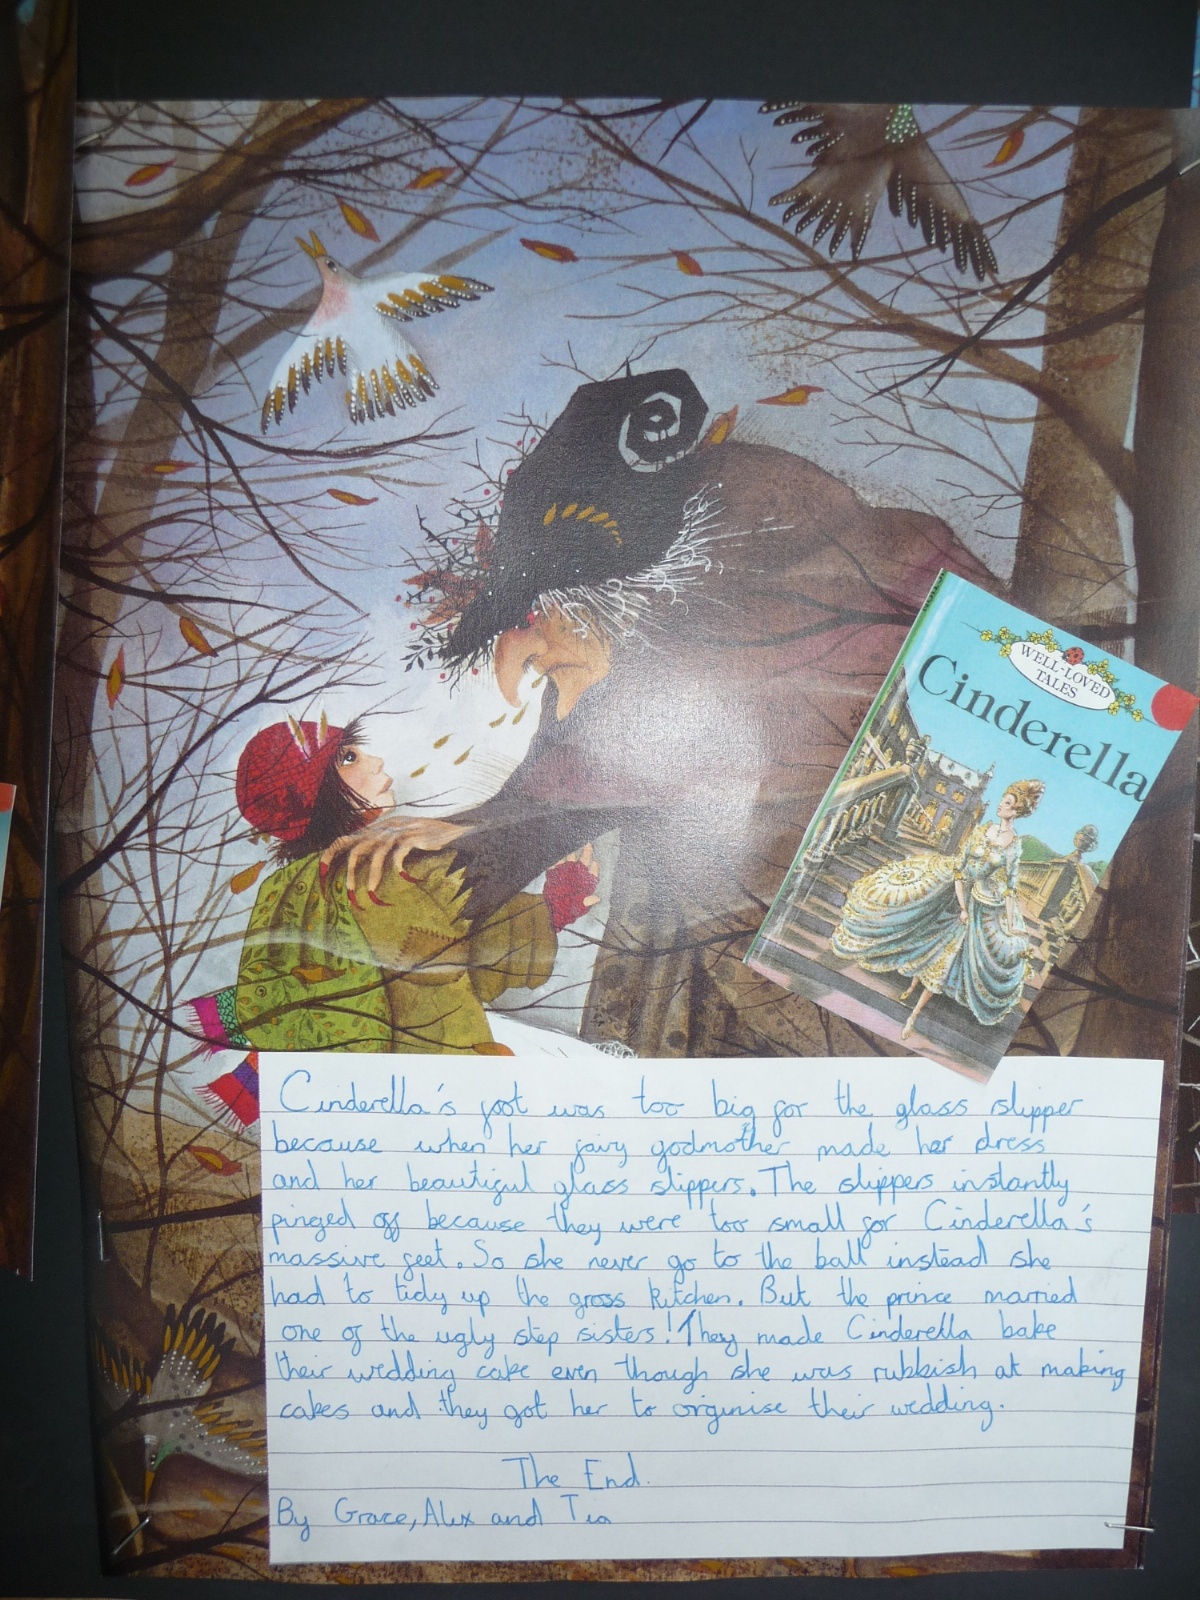 WELL-LOVED
TALES
Cinderella
Cinderella's foot was too big for the glass slipper
because when her fairy godmother made her dress
and her beautiful glass slippers. The slippers instantly
pinged off because they were too small for Cinderella's
massive feet. So she never go to the ball instead she
had to tidy up the gross kitchen. But the prince married
one of the ugly step sisters! They made Cinderella bake
their wedding cake even though she was rubbish at making
cakes and they got her to orginise their wedding.
The End.
By Grace, Alex and Tia